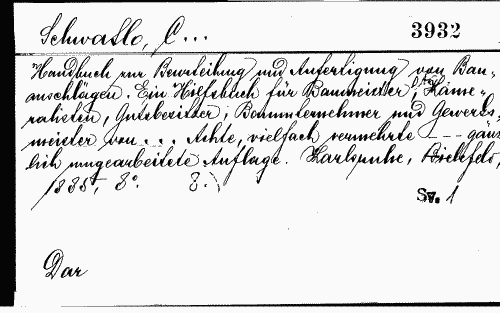 Schwatlo, C... 3932
Handbuch zur Beurteilung und Anfertigung von Bau-
anschlägen. Ein Hilfsbuch für Baumeister, Kame-
ralisten, Gutsbesitzer, Bauunternehmer und Gewerks-
meister von... Achte, vielfach vermehrte - - gänz-
lich umgearbeitete Auflage. Karlsruhe, Bielefeld,
1885, 8°. 8.)
Sv. 1
Dar